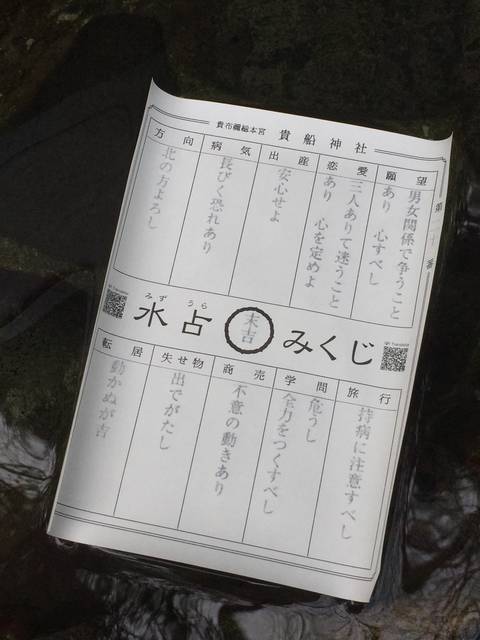 貴布禰総本宮 貴船神社
願望
男女関係で争うこと
あり 心すべし
恋愛
三人ありて迷うこと
あり 心を定めよ
出産
安心せよ
病気
長びく恐れあり
方向
北の方よろし
みず うら
水占 末吉 みくじ
旅行
持病に注意すべし
学問
危うし
全力をつくすべし
商売
不意の動きあり
失せ物
出でがたし
転居
動かぬが吉